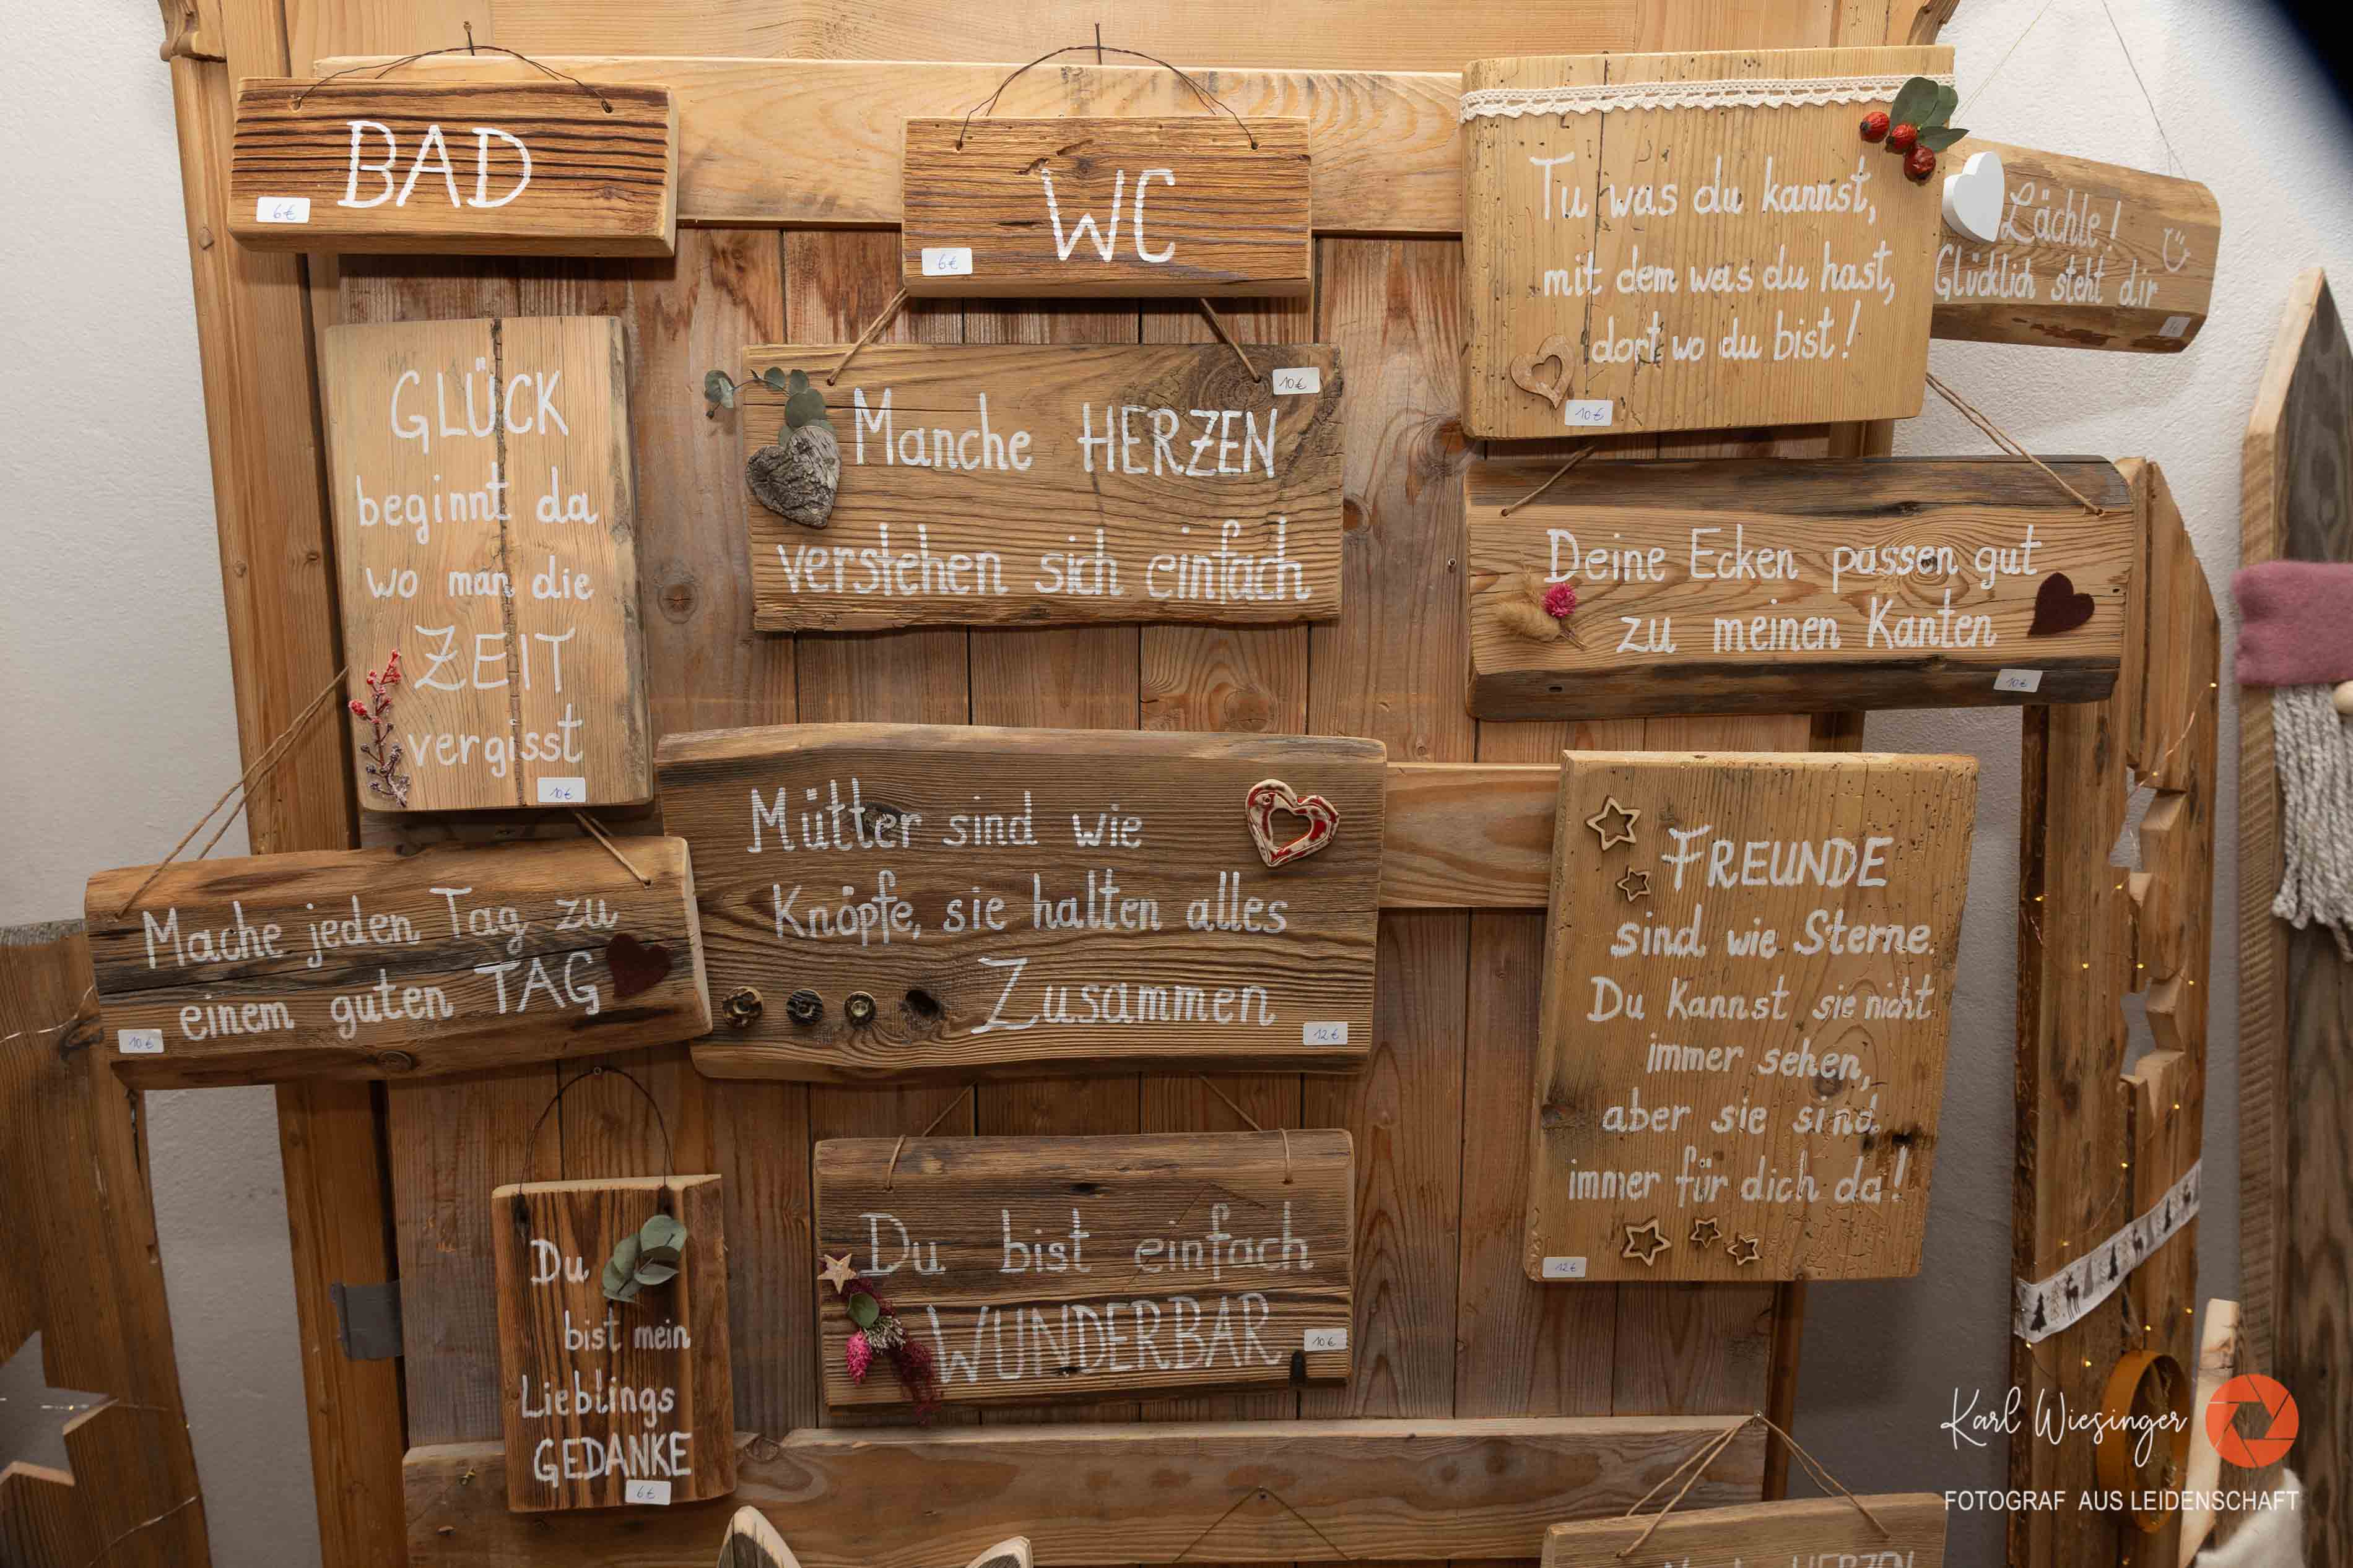 BAD
6€
WC
6€
Tu was du kannst,
mit dem was du hast,
dort wo du bist!
10€
Lächle!
Glücklich steht dir
GLÜCK
beginnt da
wo man die
ZEIT
vergisst
10€
10€
Manche HERZEN
verstehen sich einfach
Deine Ecken passen gut
zu meinen Kanten
10€
Mache jeden Tag zu
einem guten TAG
10€
Mütter sind wie
Knöpfe, sie halten alles
Zusammen
12€
FREUNDE
sind wie Sterne.
Du Kannst sie nicht
immer sehen,
aber sie sind
immer für dich da!
12€
Du
bist mein
Lieblings
GEDANKE
6€
Du bist einfach
WUNDERBAR
10€
HERZEN
Karl Wiesinger
FOTOGRAF AUS LEIDENSCHAFT